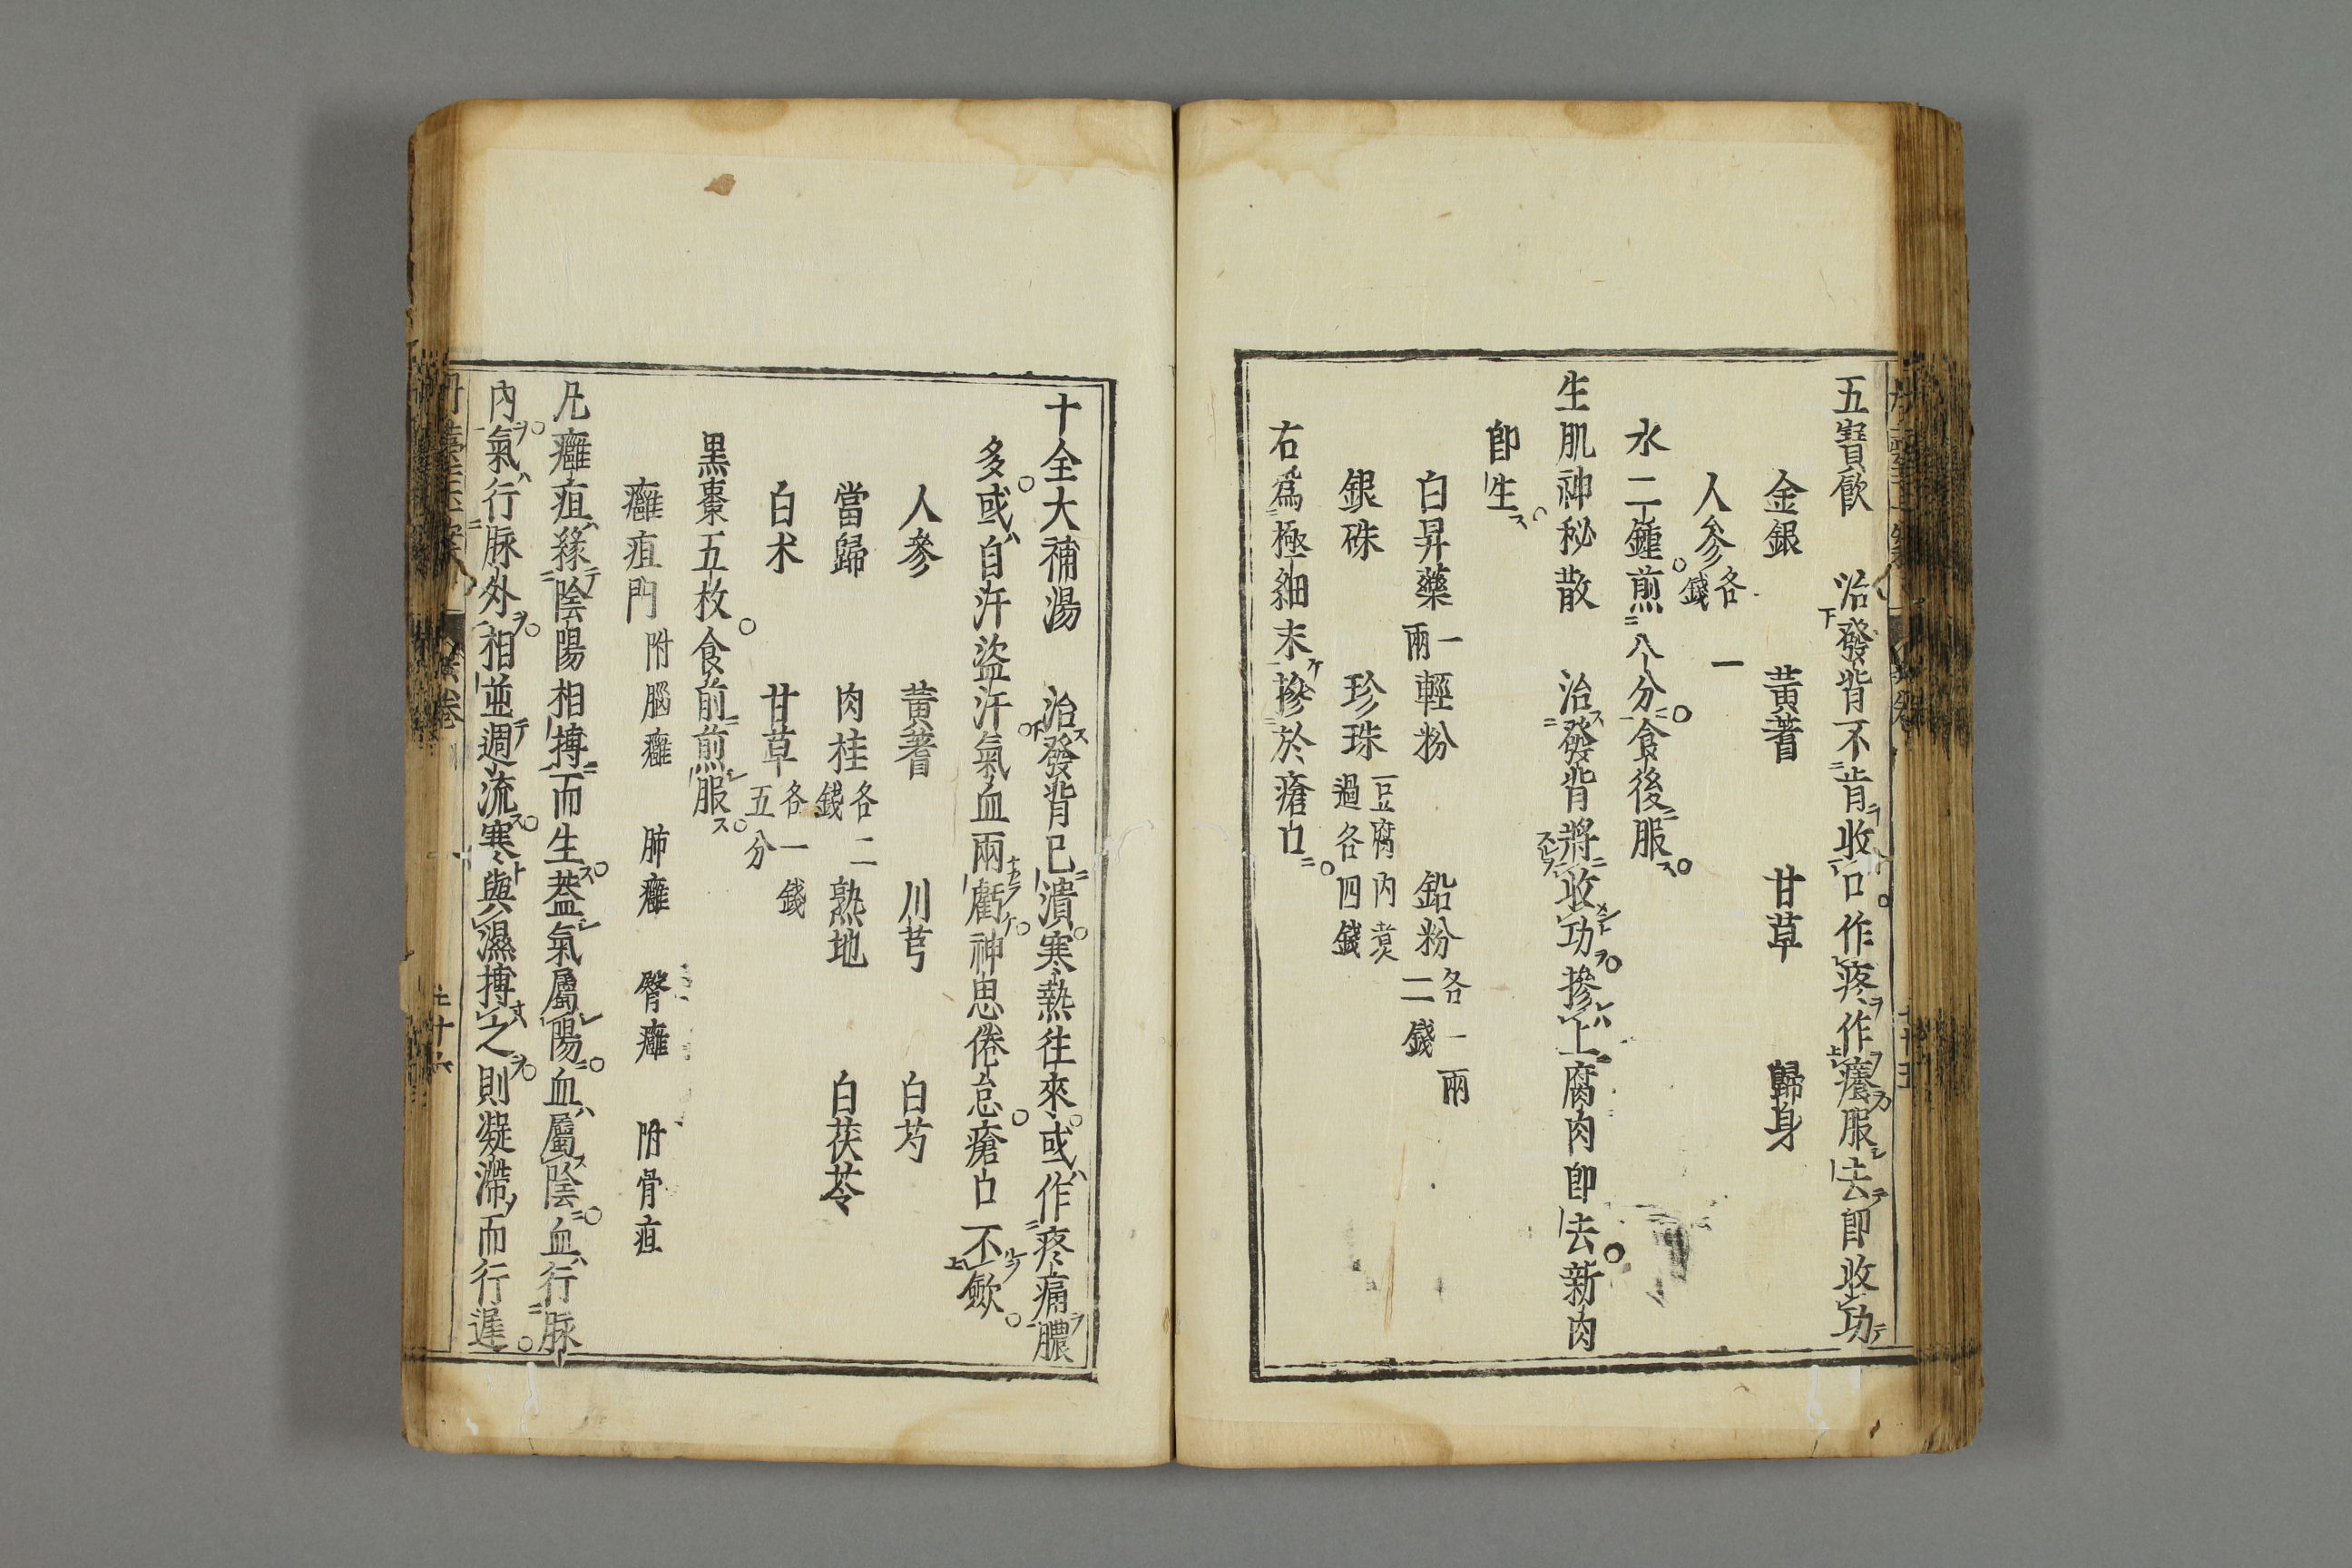 五寳飮　治發背不肯收口作疼作癢服去即收功
金銀　黃蓍　甘草　歸身
人參各一錢
水二鍾煎八分食後服
生肌神秘散　治發背將收功摻上腐肉即去新肉
即生
白昇藥一兩　輕粉　鉛粉各一兩二錢
銀硃　珍珠豆腐內煑過各四錢
右爲極細末摻於瘡口
十全大補湯　治發背已潰寒熱往來或作疼痛膿
多或自汗盜汗氣血兩虧神思倦怠瘡口不歛
人參　黃蓍　川芎　白芍
當歸　肉桂各二錢　熟地　白茯苓
白朮　甘草各一錢五分
黑棗五枚食前煎服
癰疽門　附腦癰　肺癰　臀癰　附骨疽
凡癰疽緣陰陽相搏而生葢氣屬陽血屬陰血行脉
內氣行脉外相並週流寒與濕搏之則凝滯而行遲
七十六